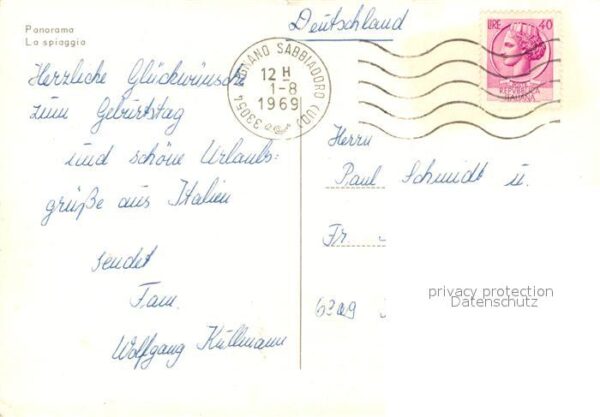 Panorama
La spiaggia
Deutschland
LIRE 40
REPVBBLICA
ITALIANA
33054 LIGNANO SABBIADORO (UD)
12 H
1-8
1969
Herzliche Glückwünsche
zum Geburtstag
und schöne Urlaubs=
grüße aus Italien
sendet
Fam.
Wolfgang Küllmann
Herrn
Paul Schmidt u.
Fr
privacy protection
Datenschutz